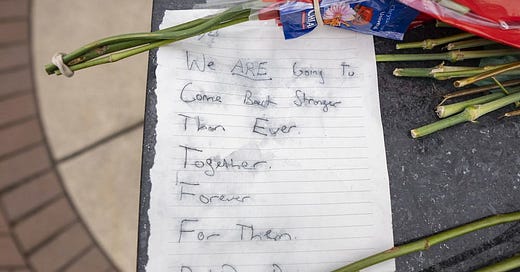 We ARE Going To
Come Back Stronger
Than Ever.
Together.
Forever
For Them.